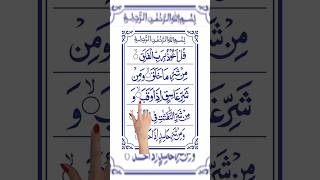 بِسْمِ اللّٰهِ الرَّحْمٰنِ الرَّحِيْمِ
بِسْمِ اللّٰهِ الرَّحْمٰنِ الرَّحِيْمِ
قُلْ اَعُوْذُ بِرَبِّ الْفَلَقِ
مِنْ شَرِّ مَا خَلَقَ وَمِنْ
شَرِّ غَاسِقٍ اِذَا وَقَبَ وَ
مِنْ شَرِّ النَّفّٰثٰتِ فِی
وَمِنْ شَرِّ حَاسِدٍ اِذَا حَسَدَ